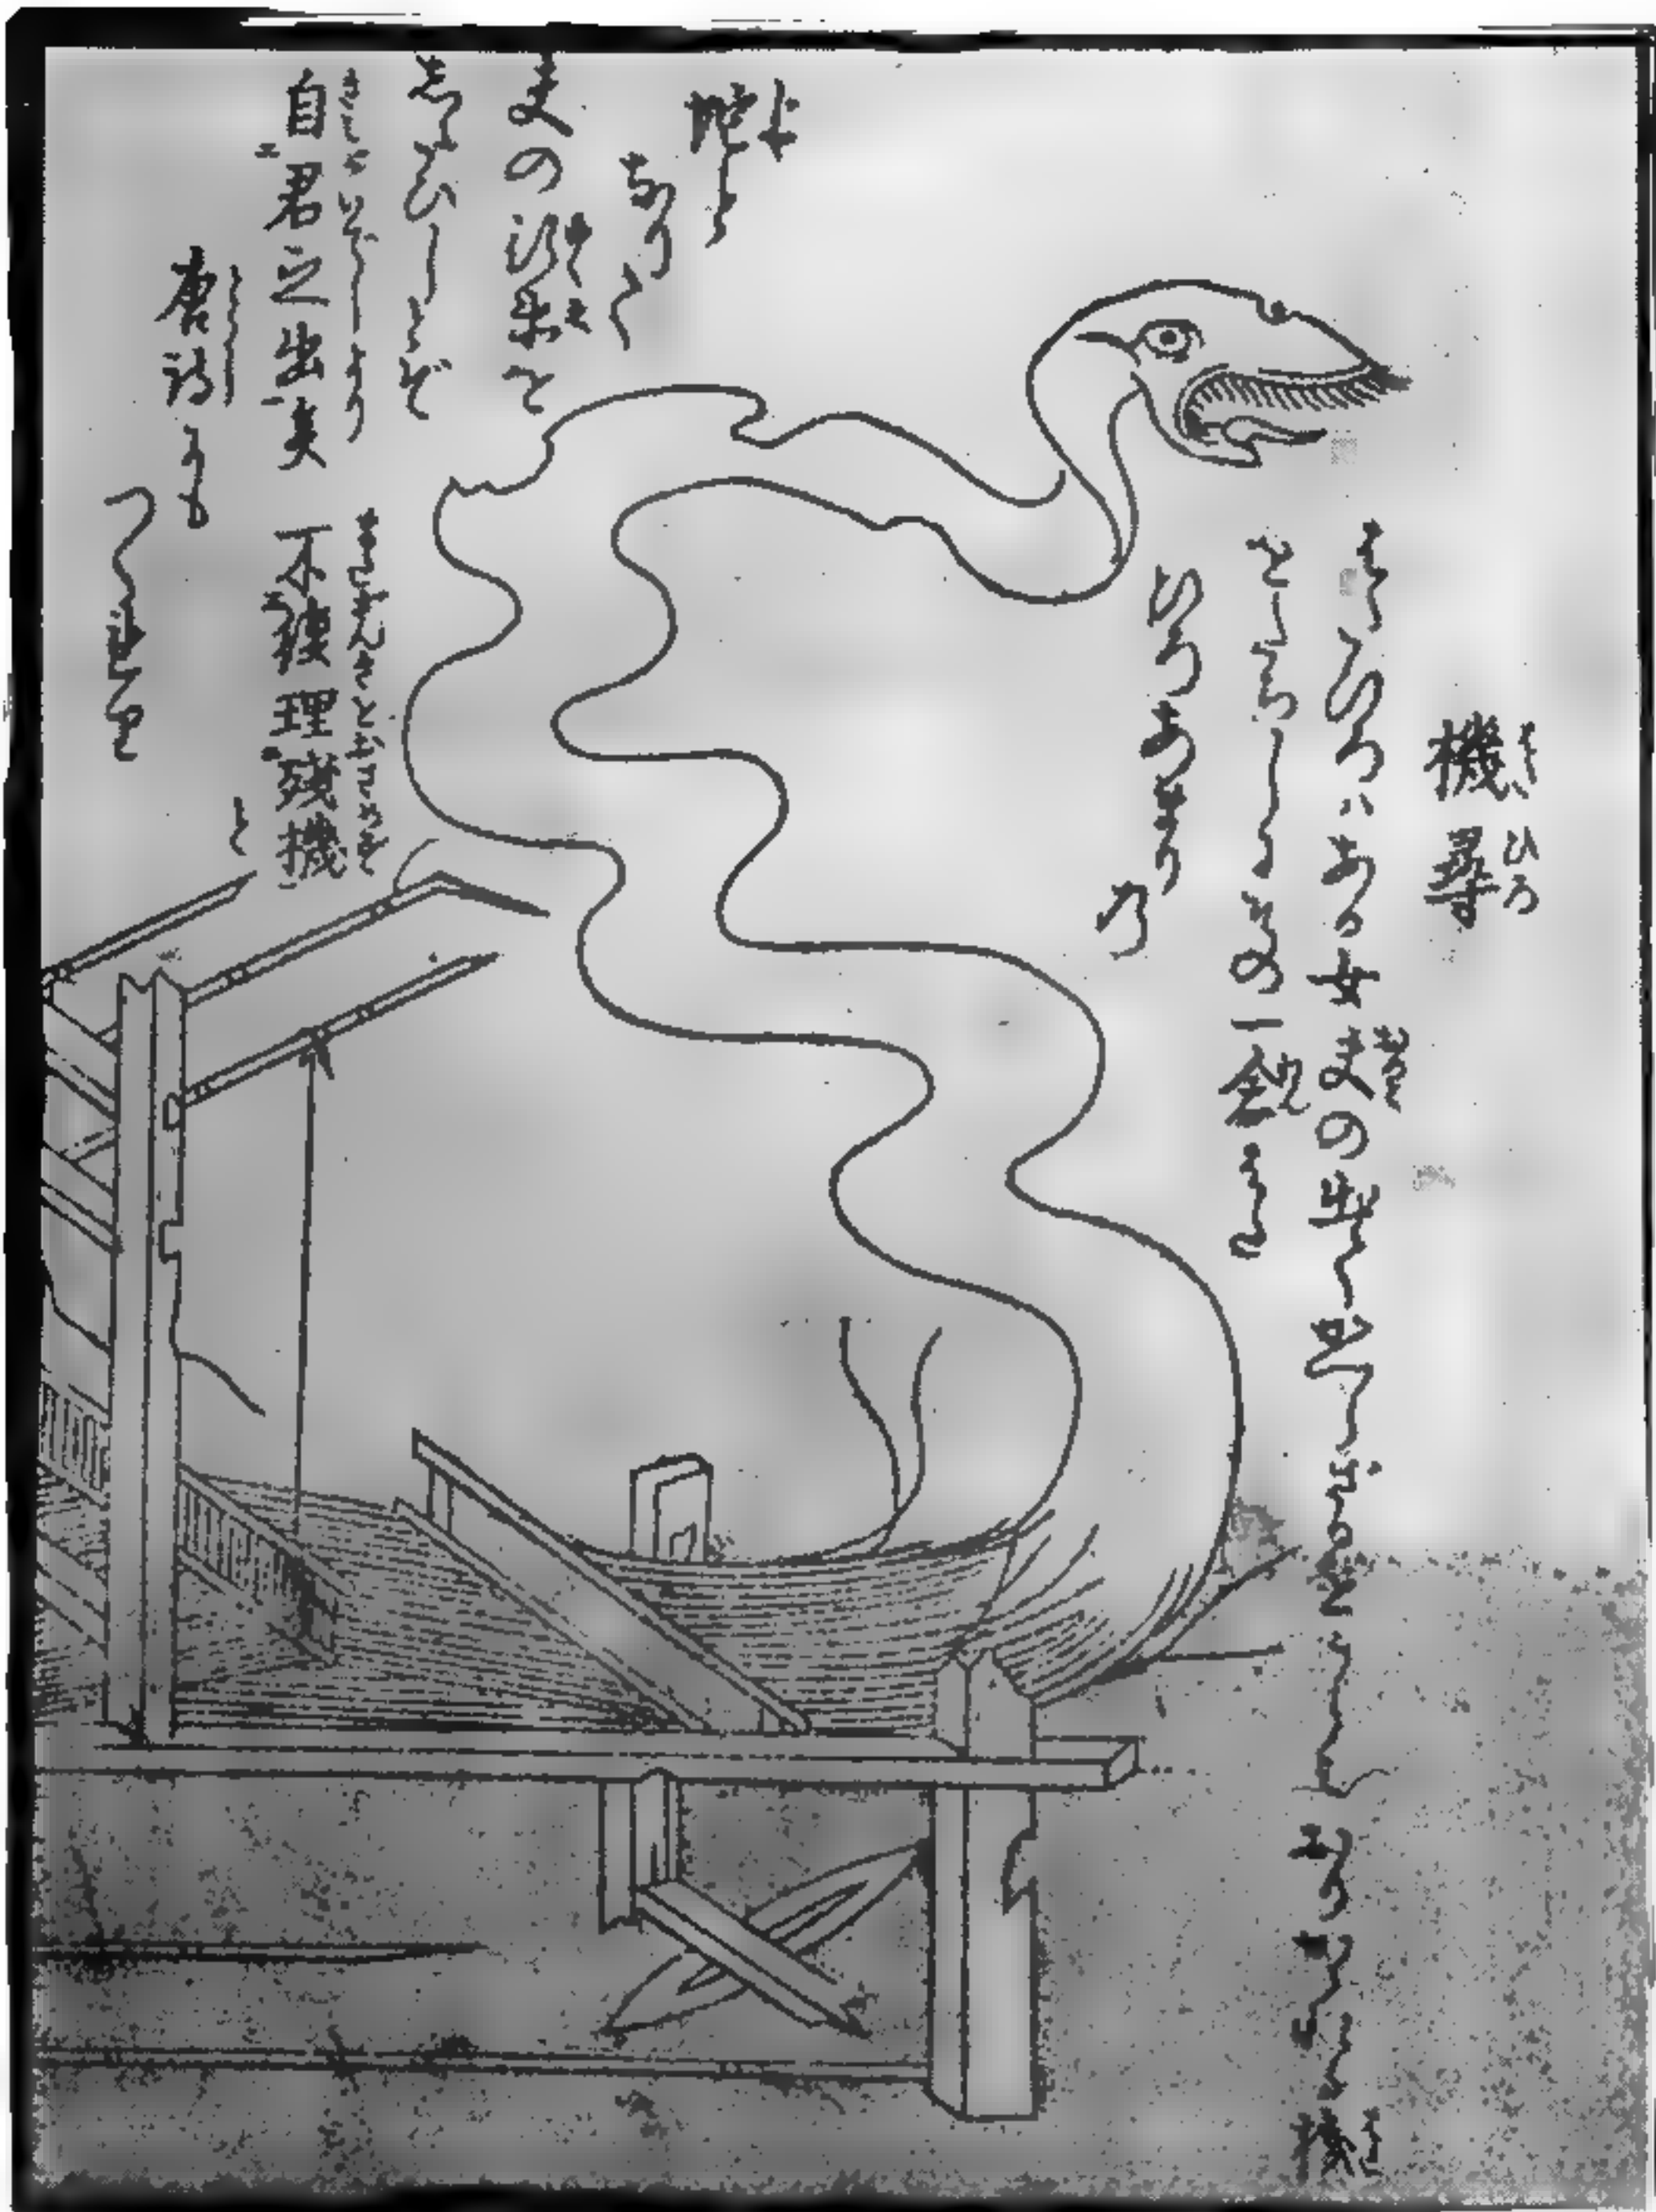 機尋
はたひろ
はたひろハある女夫の出てかへらざるをうらミおりかけたる機
をたちしにその一念はた
ひろあまり
の
蛇と
なりて
夫の行衛を
したひしとぞ
自君之出矣 不復理残機
と
唐詩にも
つくれり